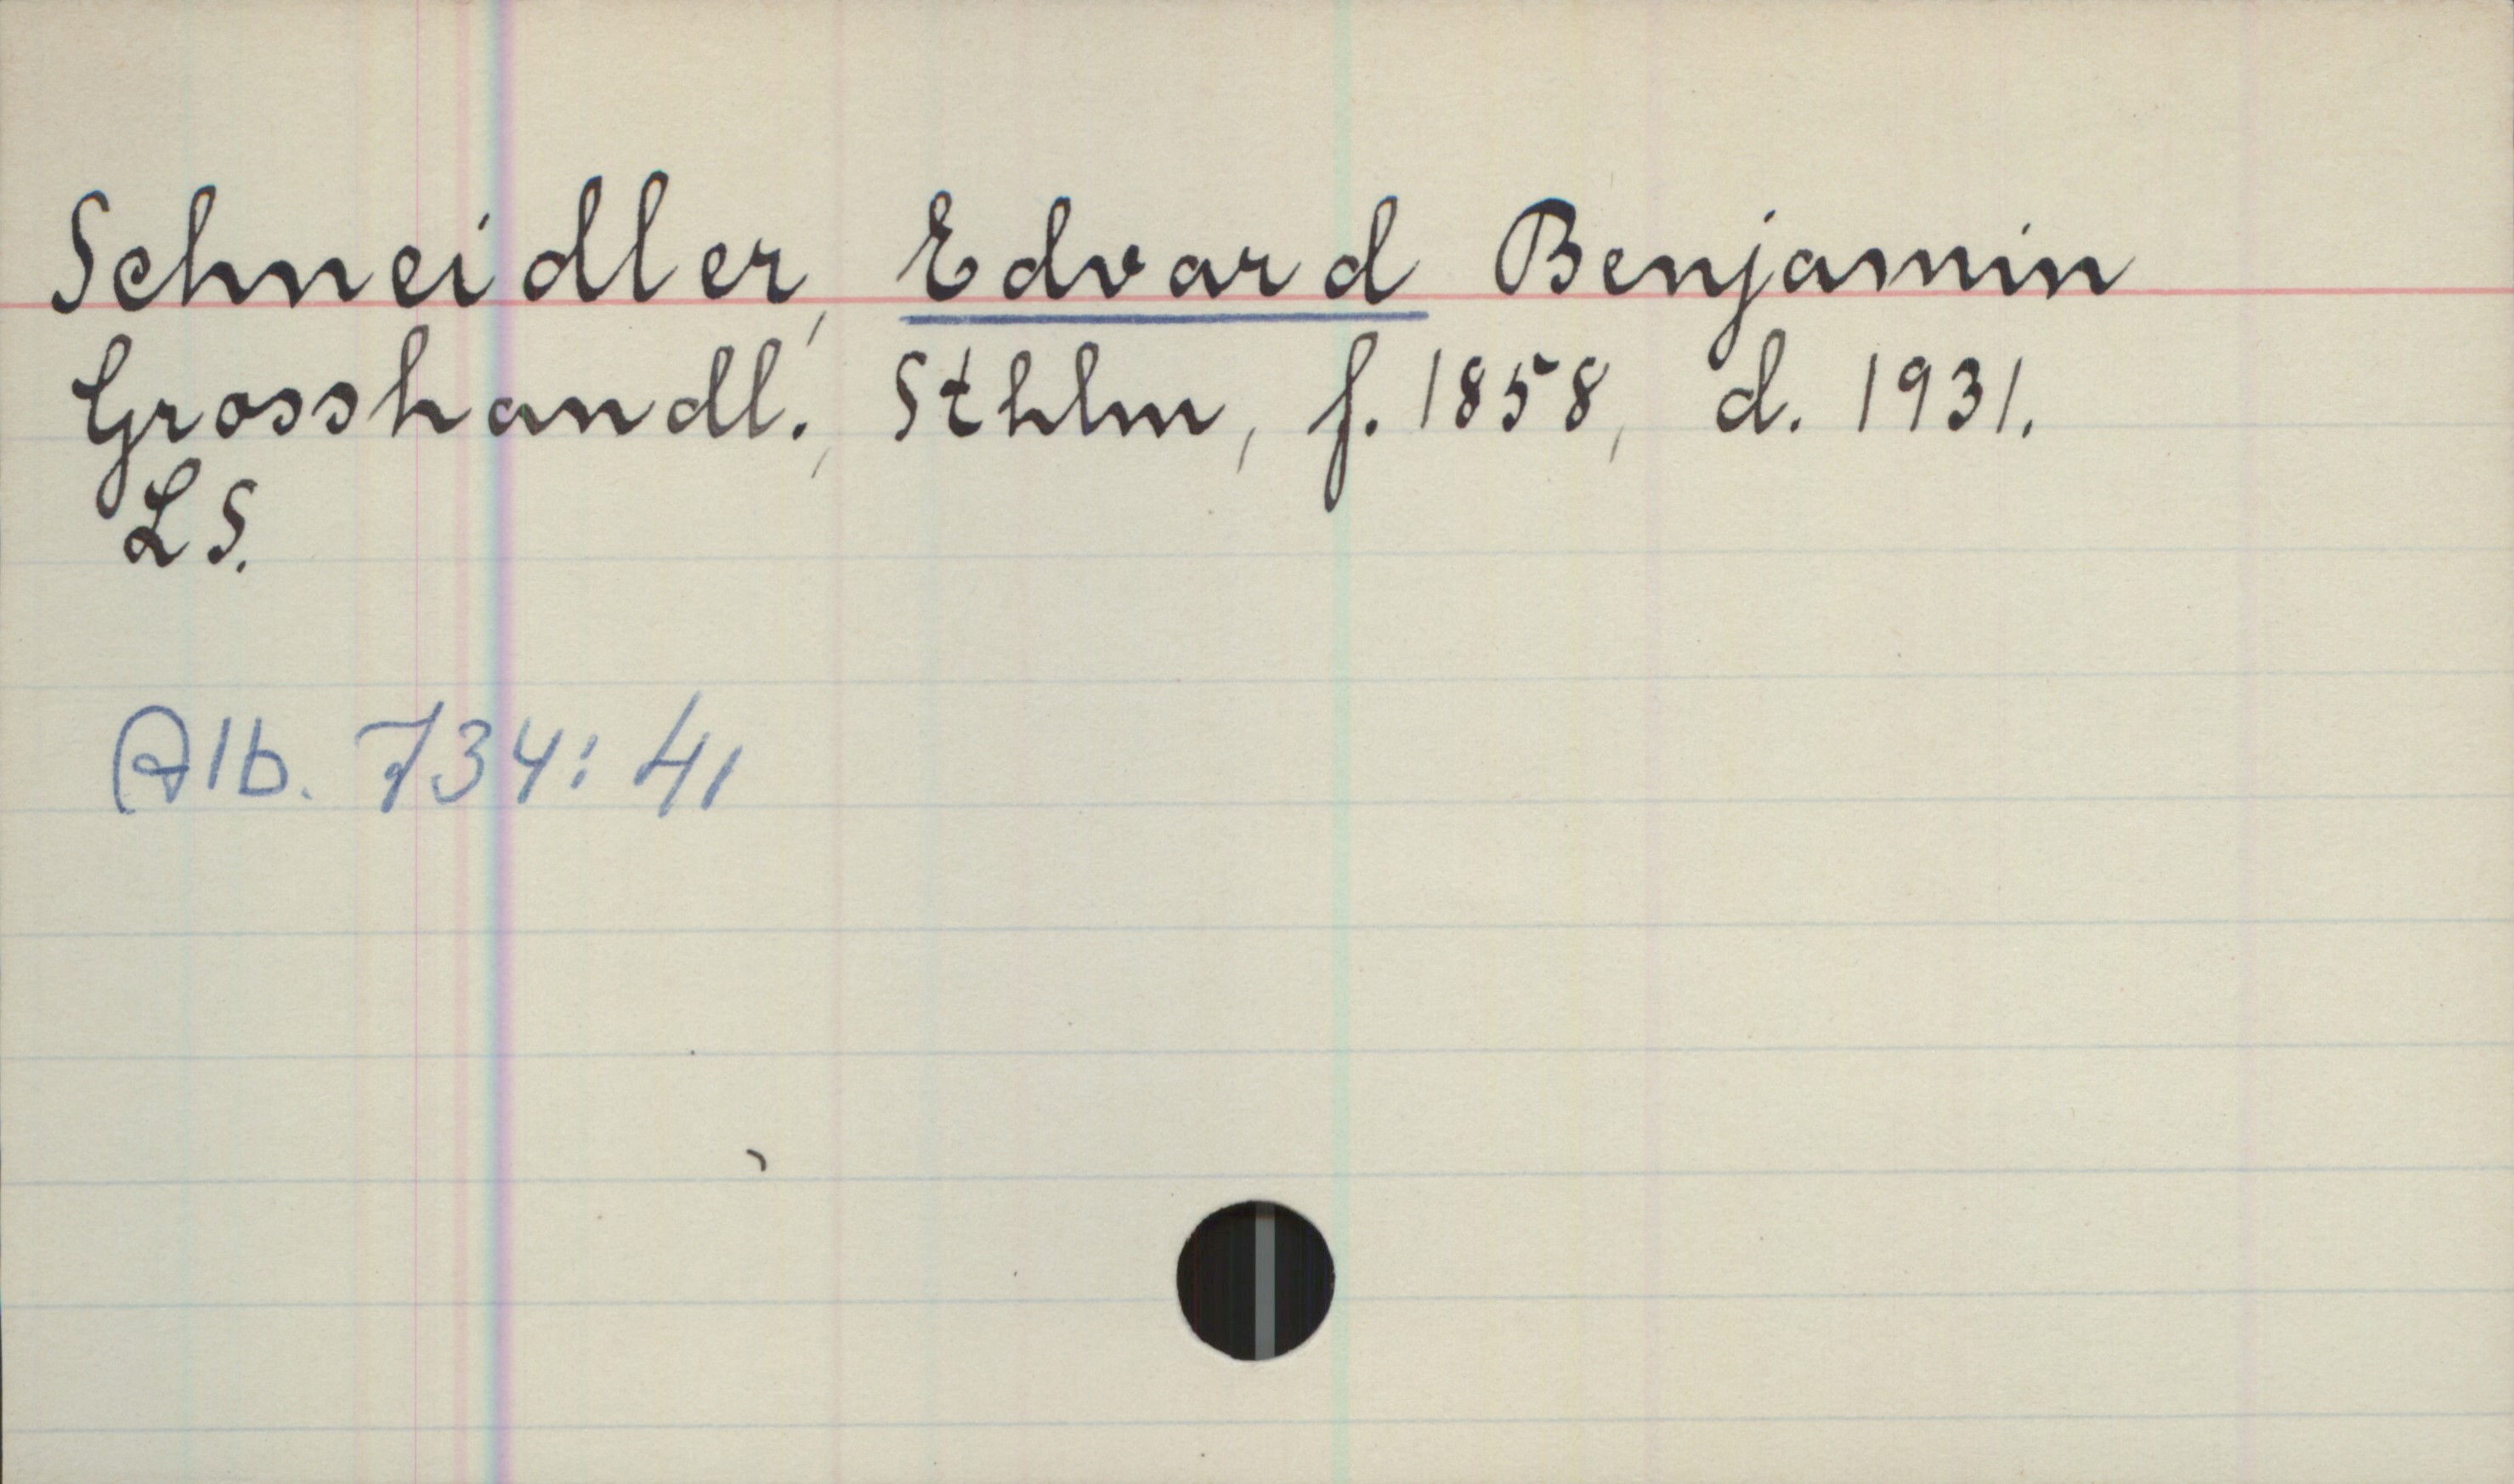 Schneidler, Edvard Benjamin
Grosshandl., Sthlm, f. 1858, d. 1931.
LS.
Alb. 734: 41